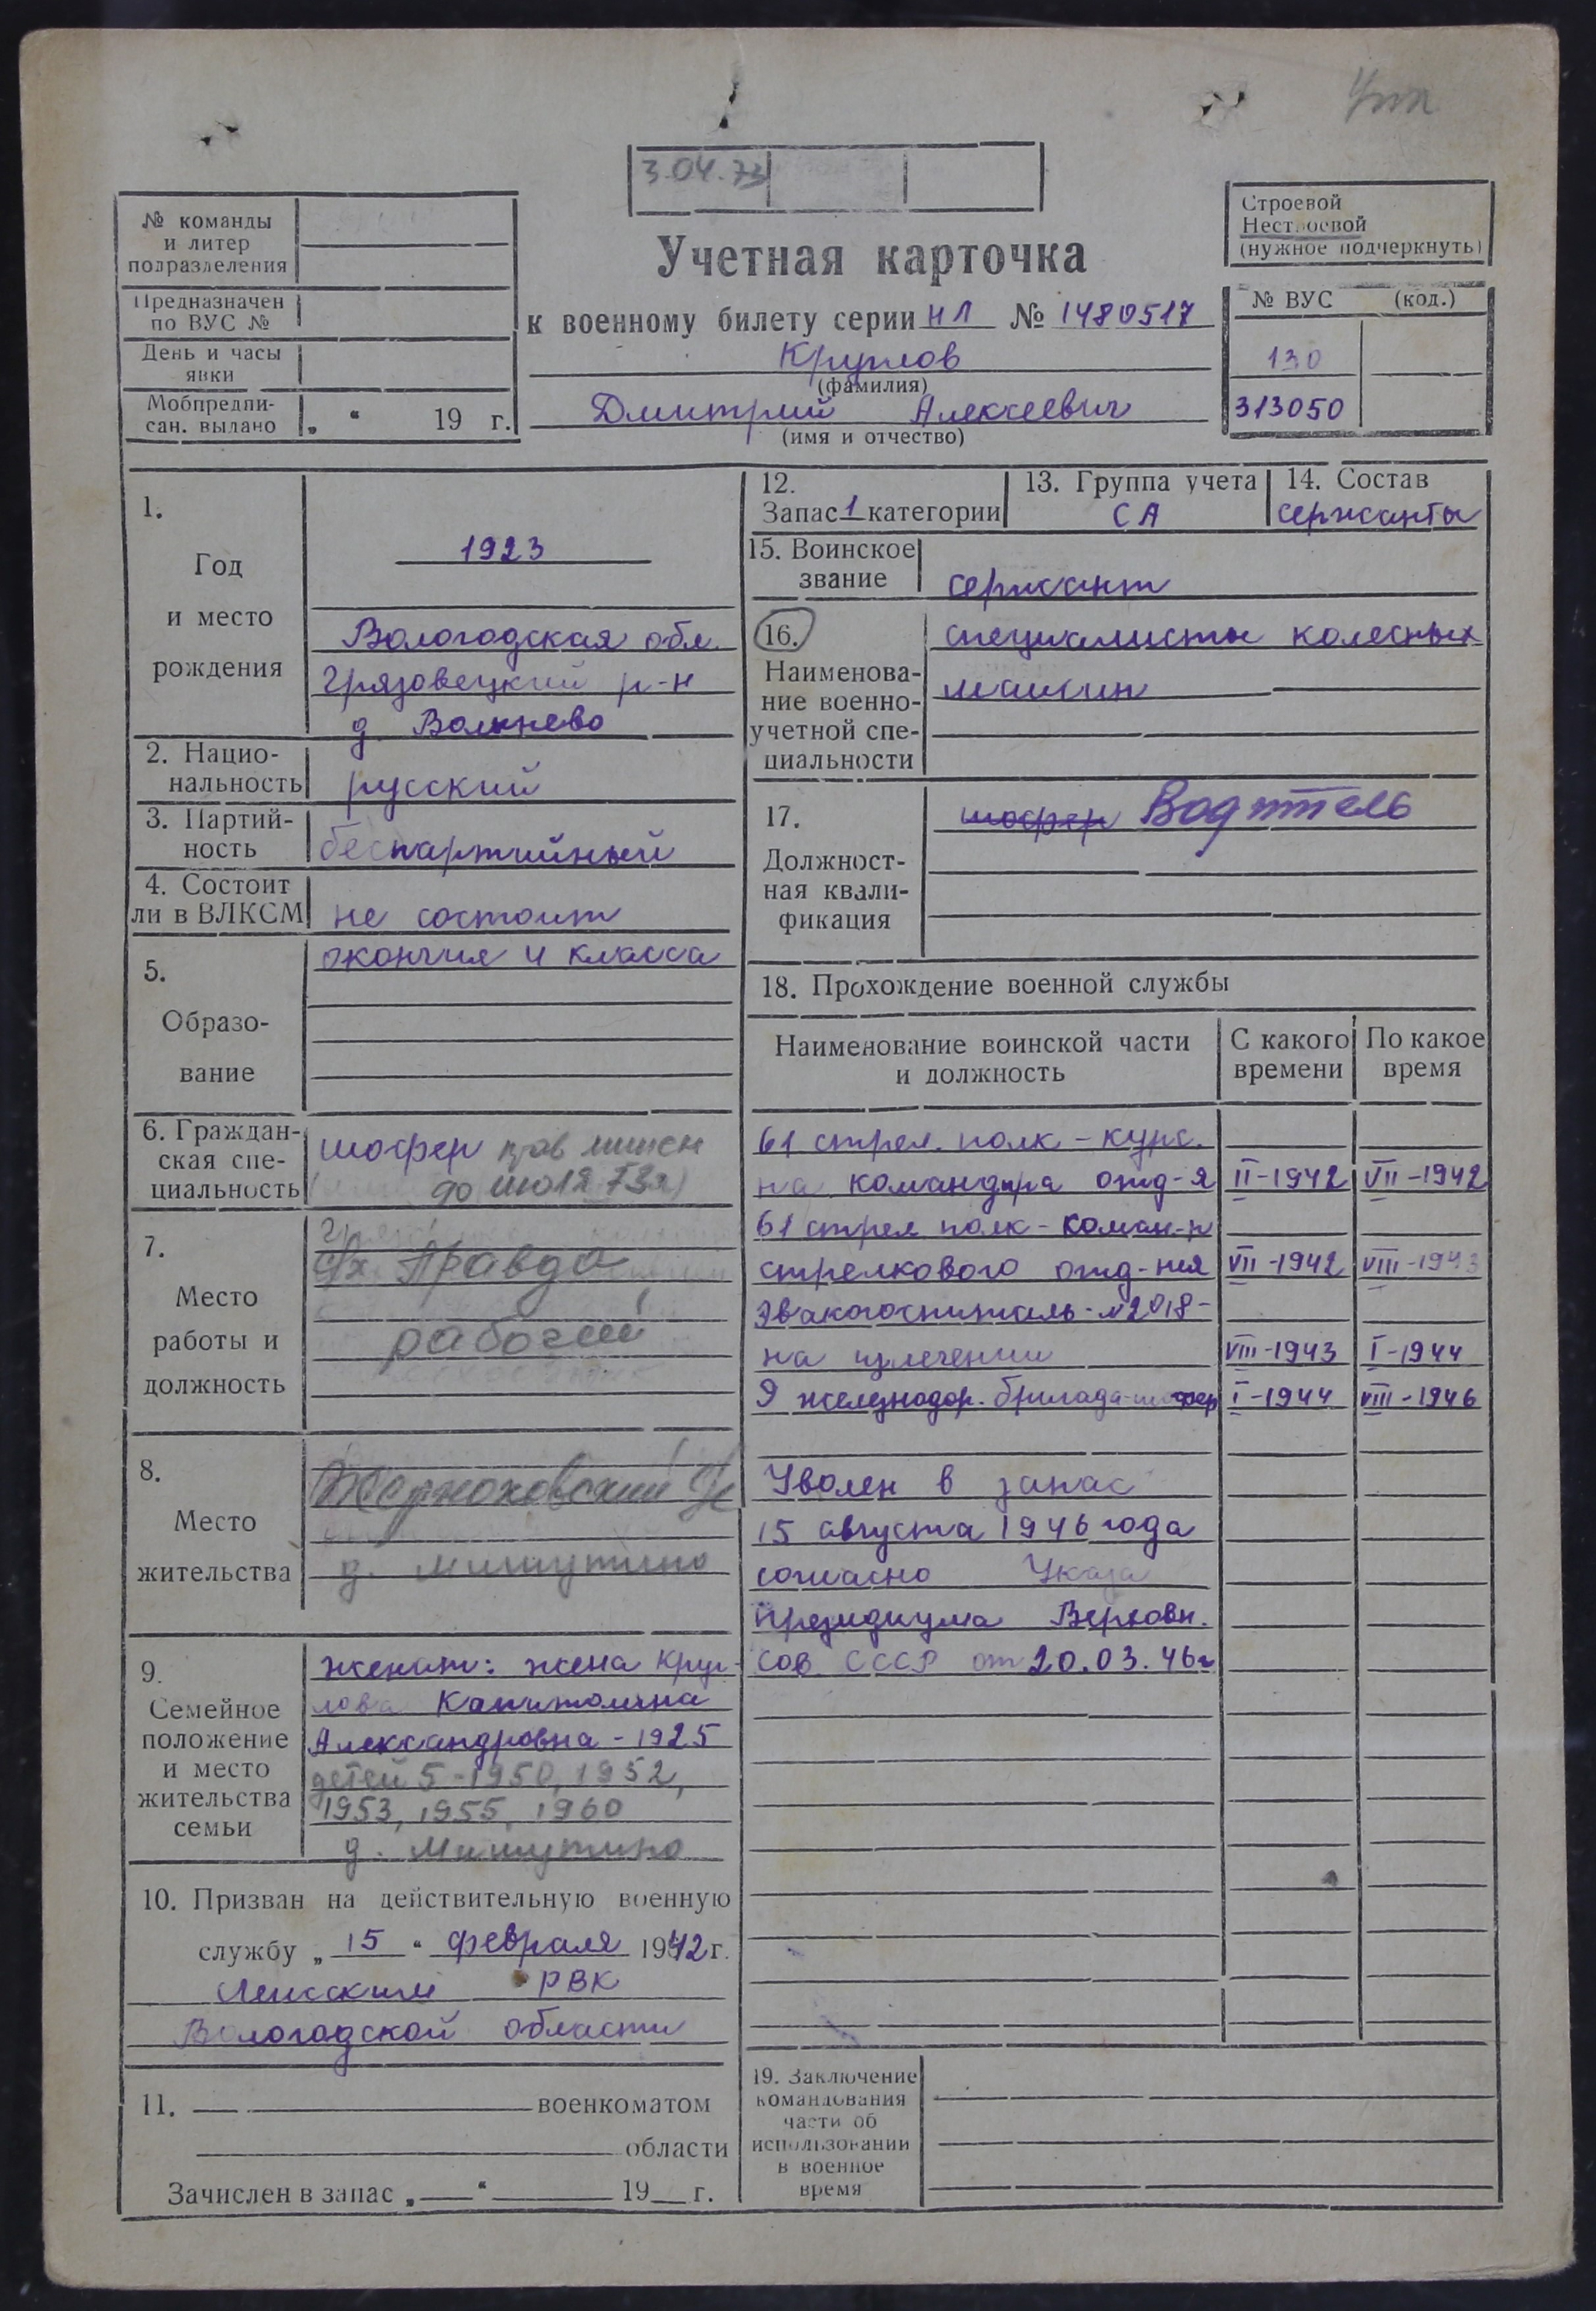 3.04.73
№ команды
и литер
подразделения
Предназначен
по ВУС №
День и часы
явки
Мобпредпи-
сан. выдано „ “ 19 г.
Учетная карточка
к военному билету серии НЛ № 1480517
Круглов
(фамилия)
Дмитрий Алексеевич
(имя и отчество)
Строевой
Нестроевой
(нужное подчеркнуть)
№ ВУС (код.)
130
313050
1.
Год
и место
рождения
1923
Вологодская обл.
Грязовецкий р-н
д.
2. Нацио-
нальность
русский
3. Партий-
ность
беспартийный
4. Состоит
ли в ВЛКСМ
не состоит
5.
Образо-
вание
окончил 4 класса
6. Граждан-
ская спе-
циальность
шофер прав лишен
до июля 73г)
7.
Место
работы и
должность
с/х Правда
рабочий
8.
Место
жительства
д. Мишутино
9.
Семейное
положение
и место
жительства
семьи
женат: жена Круг-
лова Капитолина
Александровна - 1925
детей 5 - 1950, 1952,
1953, 1955, 1960
д. Мишутино
10. Призван на действительную военную
службу „ 15 “ февраля 1942 г.
РВК
Вологодской области
11. военкоматом
области
Зачислен в запас „ “ 19 г.
12.
Запас 1 категории
13. Группа учета
СА
14. Состав
сержанты
15. Воинское
звание
сержант
16.
Наименова-
ние военно-
учетной спе-
циальности
специалисты колесных
машин
17.
Должност-
ная квали-
фикация
шофер Водитель
18. Прохождение военной службы
Наименование воинской части
и должность
С какого
времени
По какое
время
61 стрел. полк - курс.
на командира отд-я II-1942 VII-1942
61 стрел полк - коман-р
стрелкового отд-ния VII-1942 VIII-1943
Эвакогоспиталь - №2018 -
на излечении VIII-1943 I-1944
9 железнодор. бригада - шофер I-1944 VIII-1946
Уволен в запас
15 августа 1946 года
согласно Указа
Президиума Верховн.
Сов СССР от 20.03.46г
19. Заключение
командования
части об
использовании
в военное
время